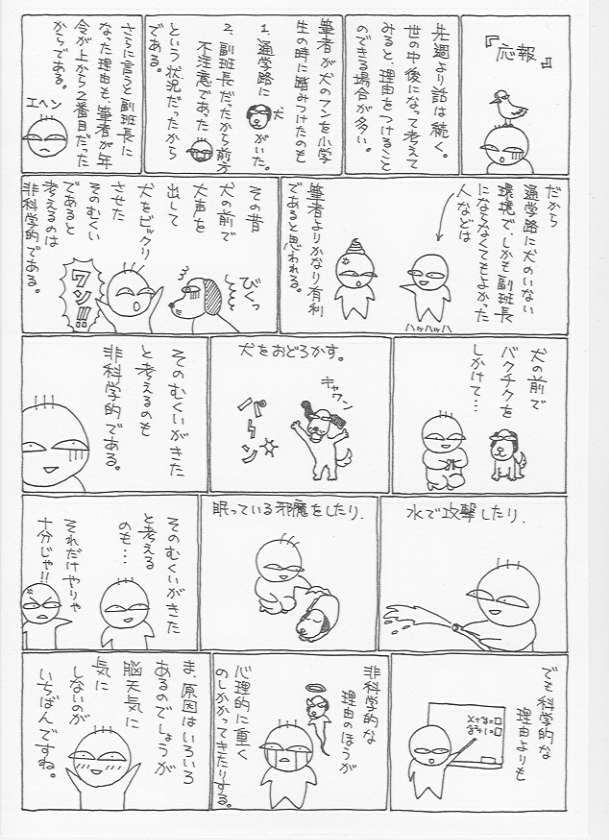 『応報』
先週より話は続く。
世の中後になって考えて
みると、理由をつけること
のできる場合が多い。
筆者が犬のフンを小学
生の時に踏みつけたのも
1. 通学路に犬がいた。
2. 副班長だったから前方
不注意であった
という状況だったから
である。
さらに言うと副班長に
なった理由も、筆者が年
令が上から2番目だった
からである。
エヘン
だから
通学路に犬のいない
環境で、しかも副班長
にならなくてもよかった
人などは
ハッハッハ
筆者よりかなり有利
であると思われる。
その昔
犬の前で
大声を
出して
犬をビックリ
させた
そのむくい
であると
考えるのは
非科学的である。
びくっ
ワン!!
犬の前で
バクチクを
しかけて…
犬をおどろかす。
キャワン
パーン
そのむくいがきた
と考えるのも
非科学的である。
水で攻撃したり、
眠っている邪魔をしたり、
そのむくいがきた
と考える
のも…
それだけやりゃ
十分じゃ!!
でも科学的な
理由よりも
非科学的な
理由のほうが
心理的に重く
のしかかってきたりする。
ま、原因はいろいろ
あるのでしょうが
脳天気に
気に
しないのが
いちばんですね。